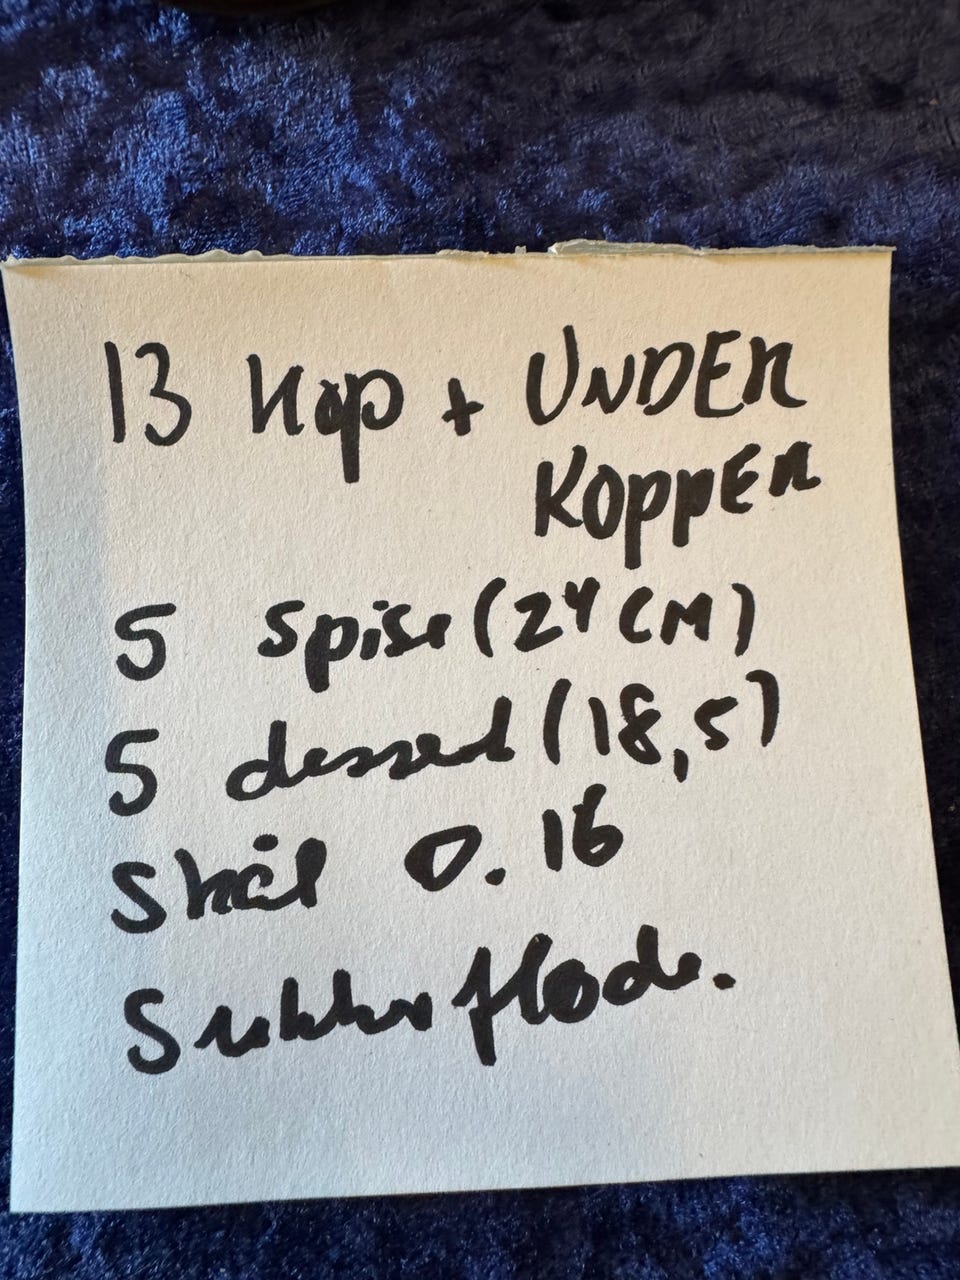 13 Kop + UNDER
KOPPER
5 Spise (24 CM)
5 dessert (18,5)
Skål 0.16
Sukker fløde.